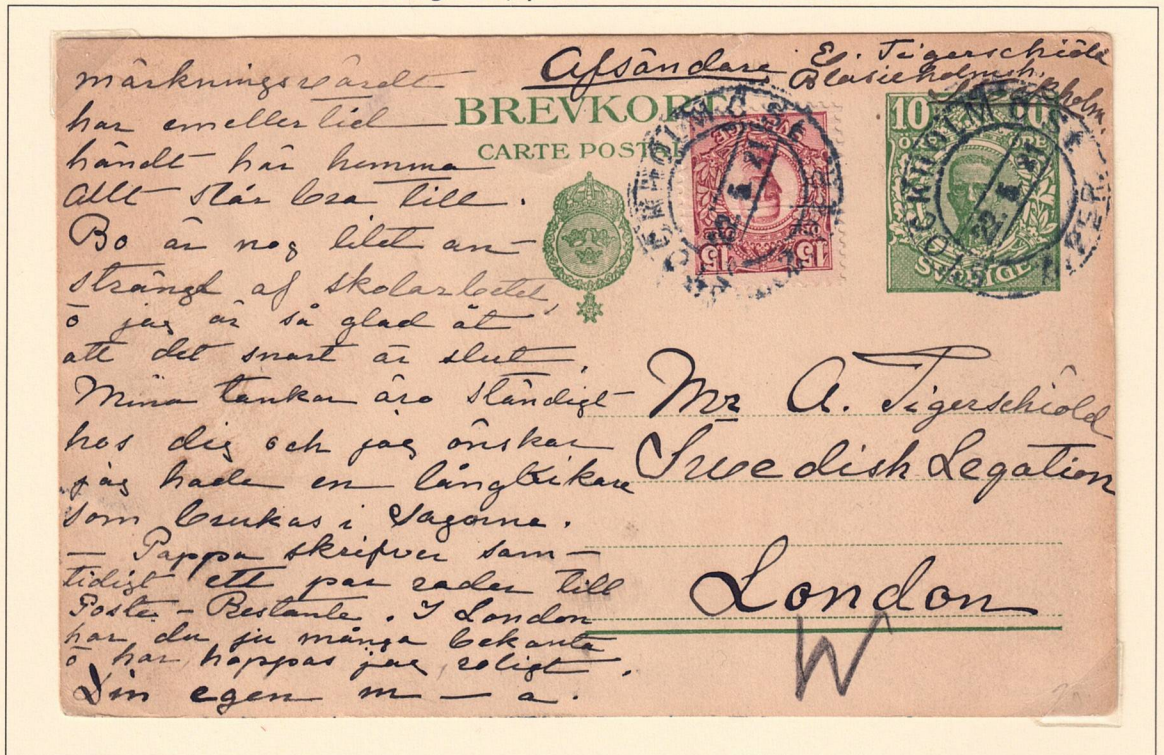 märkningsvärdt
har emellertid
händt här hemma
Allt står bra till.
Bo är nog litet an-
strängt af skolarbetet,
o jag är så glad åt
att det snart är slut.
Mina tankar äro ständigt
hos dig och jag önskar
jag hade en långkikare
som brukas i sagorna.
— Pappa skrifver sam-
tidigt ett par rader till
Poste-Restante. I London
har du ju många bekanta
o har, hoppas jag, roligt.
Din egen m—a.
Afsändare E. Tigerschiöld
Blasieholmsh.
Stockholm.
BREVKORT
CARTE POSTALE
15 15
10 10
ÖRE ÖRE
SVERIGE
STOCKHOLM
22 5 21
STOCKHOLM
22 5 21
Mr A. Tigerschiöld
Swedish Legation
London
W